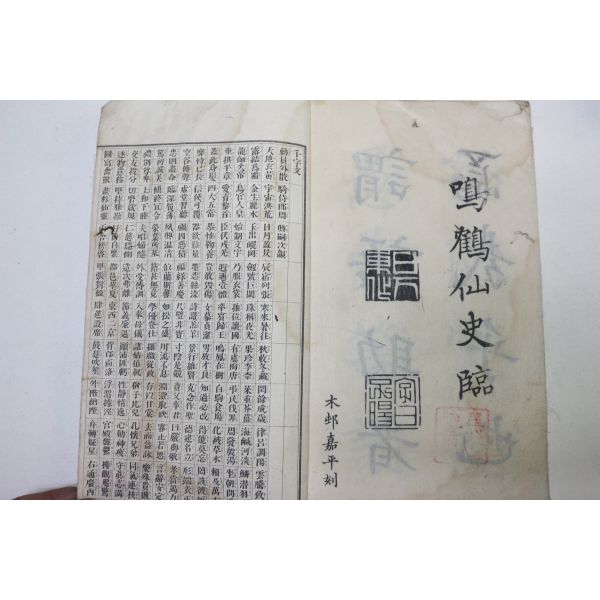 鳴鶴仙史臨
木邨嘉平刻
千字文
勅員外散騎侍郎周興嗣次韻
天地玄黃 宇宙洪荒 日月盈昃 辰宿列張 寒來暑往 秋收冬藏 閏餘成歲 律呂調陽 雲騰致
露結爲霜 金生麗水 玉出崑岡 劍號巨闕 珠稱夜光 果珍李柰 菜重芥薑 海鹹河淡 鱗潛羽
龍師火帝 鳥官人皇 始制文字 乃服衣裳 推位讓國 有虞陶唐 弔民伐罪 周發殷湯 坐朝問
垂拱平章 愛育黎首 臣伏戎羌 遐邇壹體 率賓歸王 鳴鳳在樹 白駒食場 化被草木 賴及萬
蓋此身髮 四大五常 恭惟鞠養 豈敢毀傷 女慕貞潔 男效才良 知過必改 得能莫忘 罔談彼
靡恃己長 信使可覆 器欲難量 墨悲絲淬 詩讚羔羊 景行維賢 克念作聖 德建名立 形端表正
空谷傳聲 虛堂習聽 禍因惡積 福緣善慶 尺璧非寶 寸陰是競 資父事君 曰嚴與敬 孝當竭力
忠則盡命 臨深履薄 夙興溫凊 似蘭斯馨 如松之盛 川流不息 淵澄取映 容止若思 言辭安定
篤初誠美 愼終宜令 榮業所基 籍甚無竟 學優登仕 攝職從政 存以甘棠 去而益詠 樂殊貴賤
禮別尊卑 上和下睦 夫唱婦隨 外受傅訓 入奉母儀 諸姑伯叔 猶子比兒 孔懷兄弟 同氣連枝
交友投分 切磨箴規 仁慈隱惻 造次弗離 節義廉退 顛沛匪虧 性靜情逸 心動神疲 守眞志滿
逐物意移 堅持雅操 自縻 都邑華夏 東西二京 背邙面洛 浮渭據涇 宮殿盤鬱 樓觀飛驚
圖寫禽獸 畫彩仙靈 傍啓 甲帳對楹 肆筵設席 鼓瑟吹笙 升階納陛 弁轉疑星 右通廣內